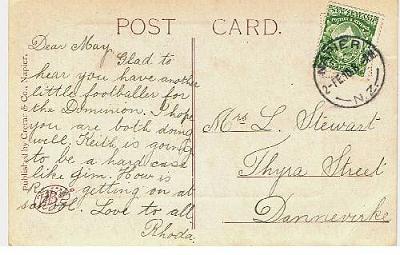 POST CARD.
Published by Craerar & Co., Napier.
Dear May,
Glad to
hear you have another
little footballer for
the Dominion. I hope
you are both doing
well, Keith is going
to be a hard case
like Jim. How is
getting on at
school. Love to all
Rhoda.
Mrs L. Stewart
Thyra Street
Dannevirke
N.Z.